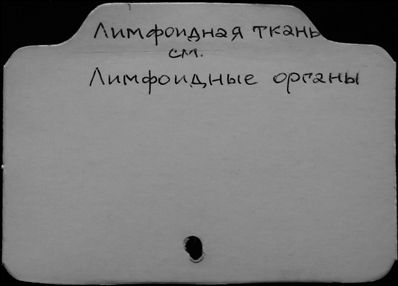 Лимфоидная ткань
см.
Лимфоидные органы